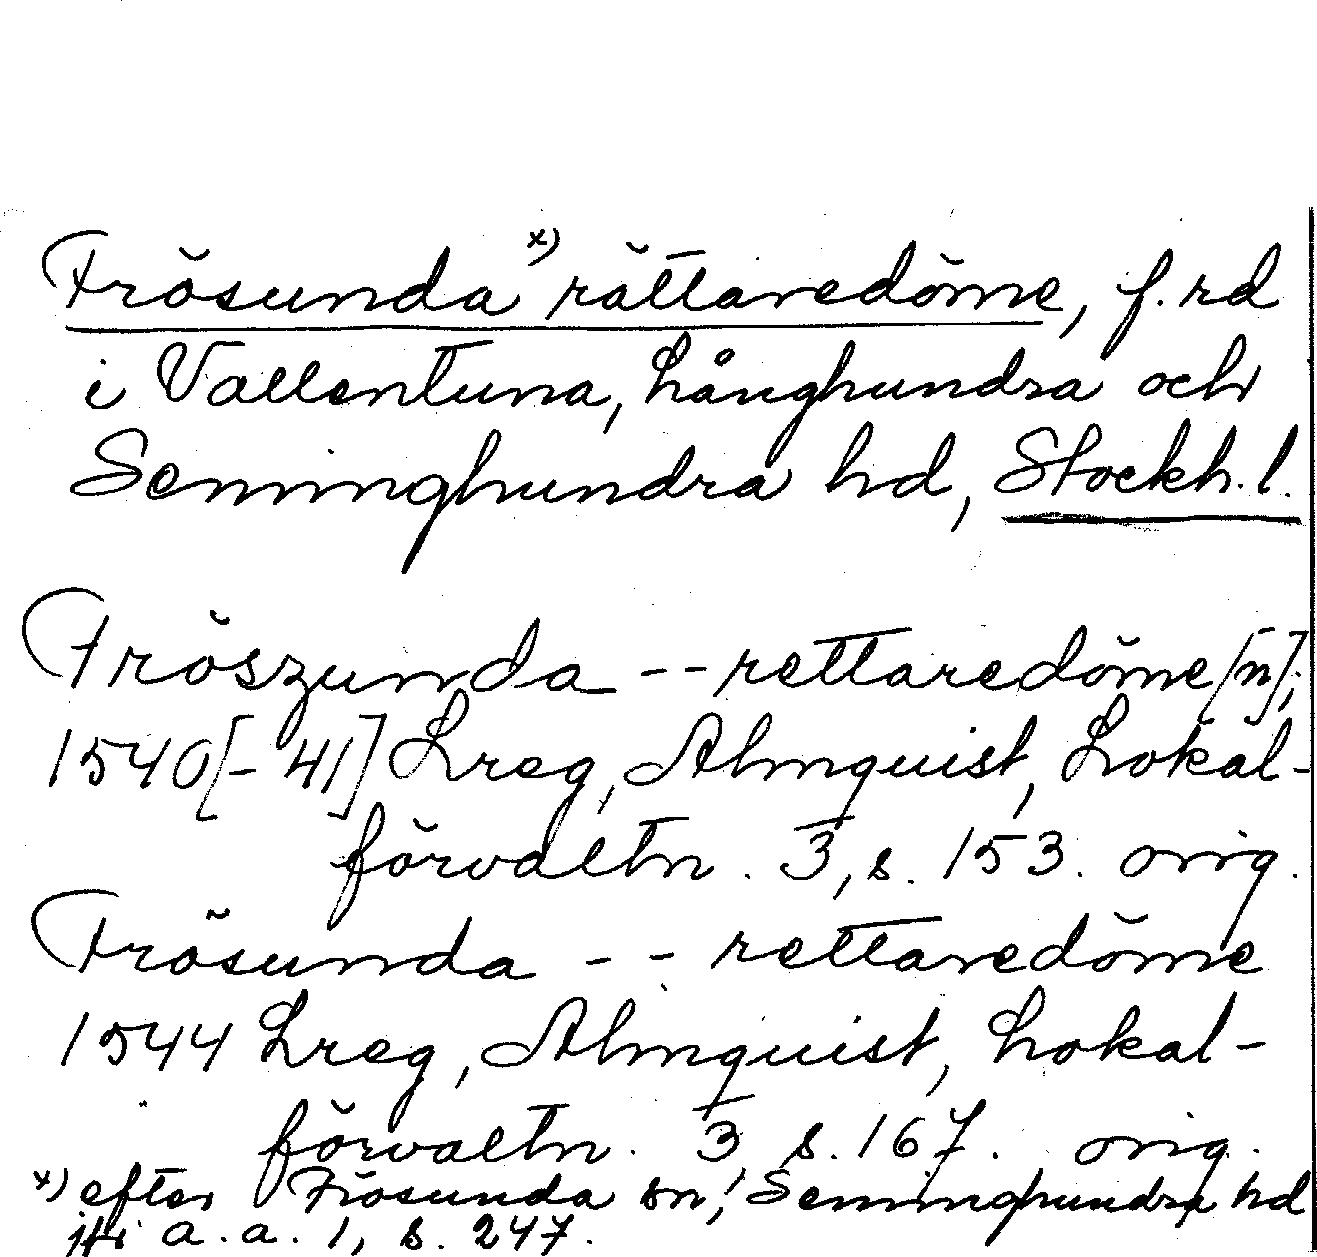 Frösunda x) rättaredöme, f. rd
i Vallentuna, Långhundra och
Seminghundra hd, Stockh. l.
Fröszunda -- rettaredöme[n];
1540[-41] Lreg, Almquist, Lokal-
förvaltn. 3, s. 153. orig.
Frösunda -- rettaredöme
1544 Lreg, Almquist, Lokal-
förvaltn. 3 s. 167. orig.
x) efter Frösunda sn, Seminghundra hd
jfr a. a. 1, s. 247.